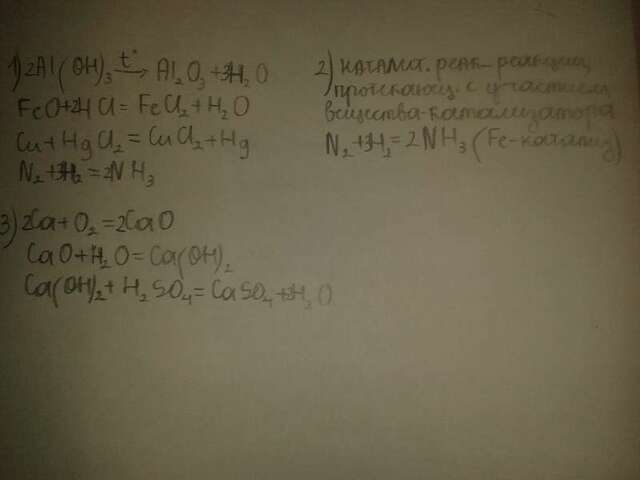 1) 2Al(OH)₃ →t° Al₂O₃ + 3H₂O
FeO + 2HCl = FeCl₂ + H₂O
Cu + HgCl₂ = CuCl₂ + Hg
N₂ + 3H₂ = 2NH₃
2) каталит. реак - реакции,
протекающ. с участием
вещества-катализатора
N₂ + 3H₂ = 2NH₃ (Fe-катализ)
3) 2Ca + O₂ = 2CaO
CaO + H₂O = Ca(OH)₂
Ca(OH)₂ + H₂SO₄ = CaSO₄ + 2H₂O